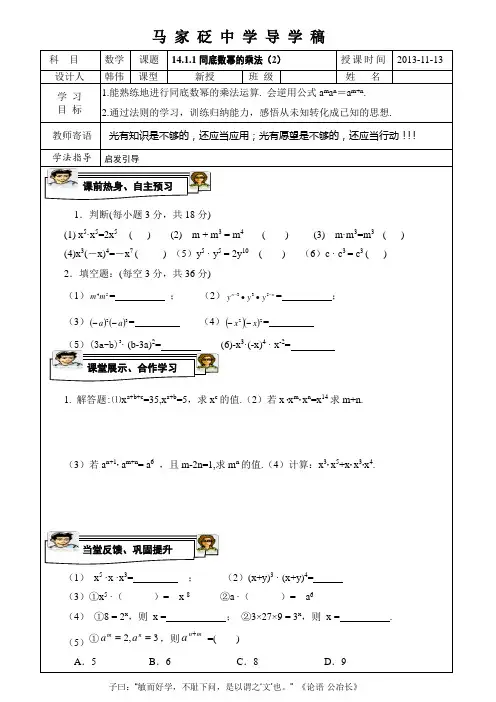 马 家 砭 中 学 导 学 稿
科 目 数学 课题 14.1.1 同底数幂的乘法（2） 授课时间 2013-11-13
设计人 韩伟 课型 新授 班 级 姓 名
学 习 目 标 1.能熟练地进行同底数幂的乘法运算. 会逆用公式 aᵐaⁿ＝aᵐ⁺ⁿ.
2.通过法则的学习，训练归纳能力，感悟从未知转化成已知的思想.
教师寄语 光有知识是不够的，还应当应用；光有愿望是不够的，还应当行动！！！
学法指导 启发引导
课前热身、自主预习
1．判断(每小题 3 分，共 18 分)
(1) x⁵·x⁵=2x⁵ ( ) (2) m + m³ = m⁴ ( ) (3) m·m³=m³ ( )
(4)x³(－x)⁴=－x⁷ ( ) （5）y⁵ · y⁵ = 2y¹⁰ ( ) （6）c · c³ = c³ ( )
2．填空题：(每空 3 分，共 36 分)
（3）(−a)²(−a)²=
（5）（3a−b）³· (b-3a)²= (6)-x³·(-x)⁴ · x⁻²=
课堂展示、合作学习
1. 解答题:⑴xᵃ⁺ᵇ⁺ᶜ=35,xᵃ⁺ᵇ=5，求 xᶜ 的值.（2）若 x ·xᵐ· xⁿ=x¹⁴ 求 m+n.
（3）若 aⁿ⁺¹· aᵐ⁺ⁿ= a⁶ ，且 m-2n=1,求 mⁿ 的值.（4）计算：x³· x⁵+x· x³·x⁴.
当堂反馈、巩固提升
（1） x⁵ ·x ·x³= ； （2）(x+y)³ · (x+y)⁴=
（3）①x⁵ ·（ ）= x ⁸ ②a ·（ ）= a⁶
（4） ①8 = 2ˣ，则 x = ； ②3×27×9 = 3ˣ，则 x = .
（5）①aᵐ = 2, aⁿ = 3，则 aⁿ⁺ᵐ =( )
A．5 B．6 C．8 D．9
子曰：“敏而好学，不耻下问，是以谓之‘文’也。”《论语·公冶长》